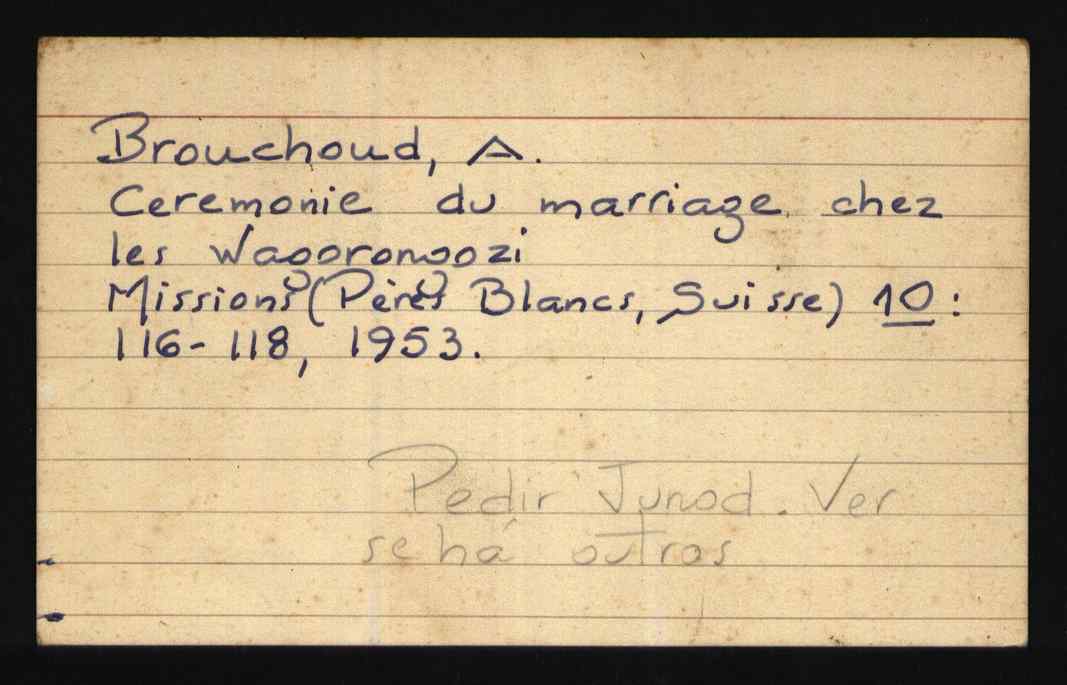 Brouchoud, A.
Ceremonie du marriage chez
les Wagorongozi
Missions (Pères Blancs, Suisse) 10:
116-118, 1953.
Pedir Junod. Ver
se há outros